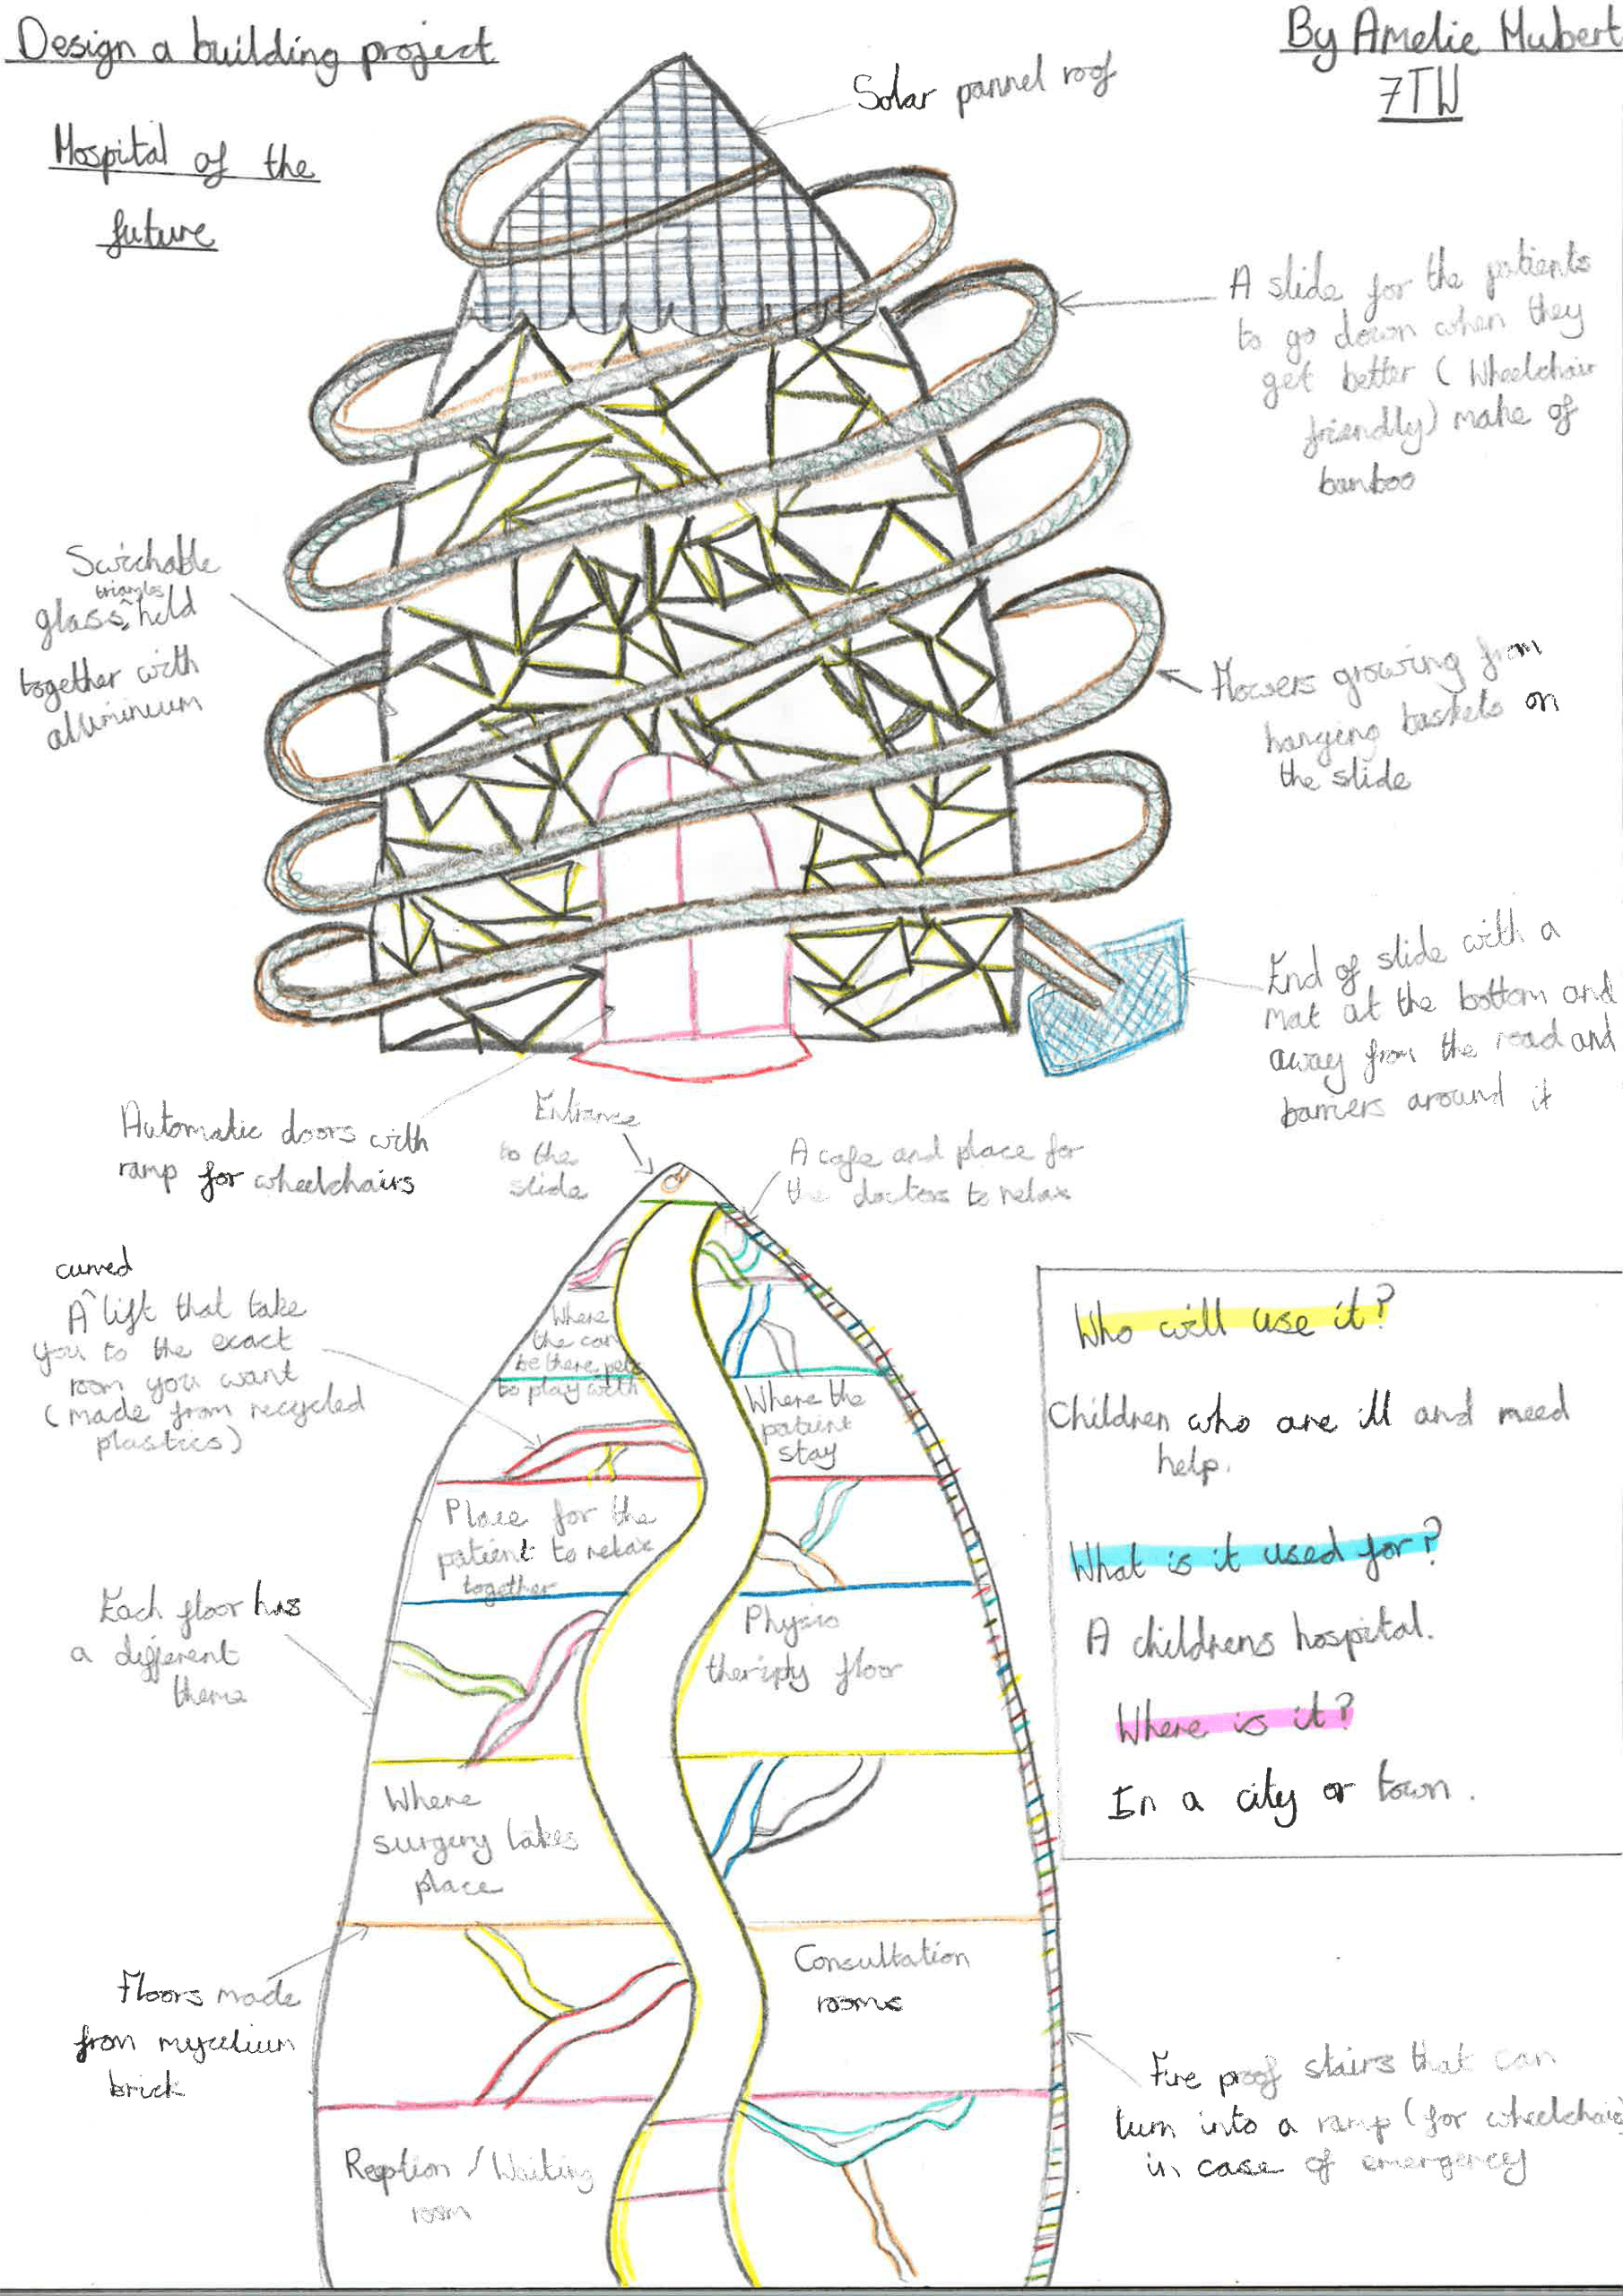 Design a building project
By Amelie Hubert
7TW
Hospital of the
future
Solar pannel roof
A slide for the patients
to go down when they
get better ( Wheelchair
friendly) make of
bamboo
Swichable
triangles
glass ^ held
together with
alluminium
Flowers growing from
hanging baskets on
the slide
End of slide with a
mat at the bottom and
away from the road and
barriers around it
Automatic doors with
ramp for wheelchairs
Entrance
to the
slide
A cafe and place for
the doctors to relax
curved
A ^ lift that take
you to the exact
room you want
( made from recycled
plastics)
Where
the can
be there pets
to play with
Where the
patient
stay
Place for the
patient to relax
together
Each floor has
a different
theme
Physio
theripty floor
Where
surgery takes
place
Floors made
from mycelium
brick
Consultation
rooms
Reption / Waiting
room
Fire proof stairs that can
turn into a ramp (for wheelchairs)
in case of emergency
Who will use it?
Children who are ill and need
help.
What is it used for?
A childrens hospital.
Where is it?
In a city or town.